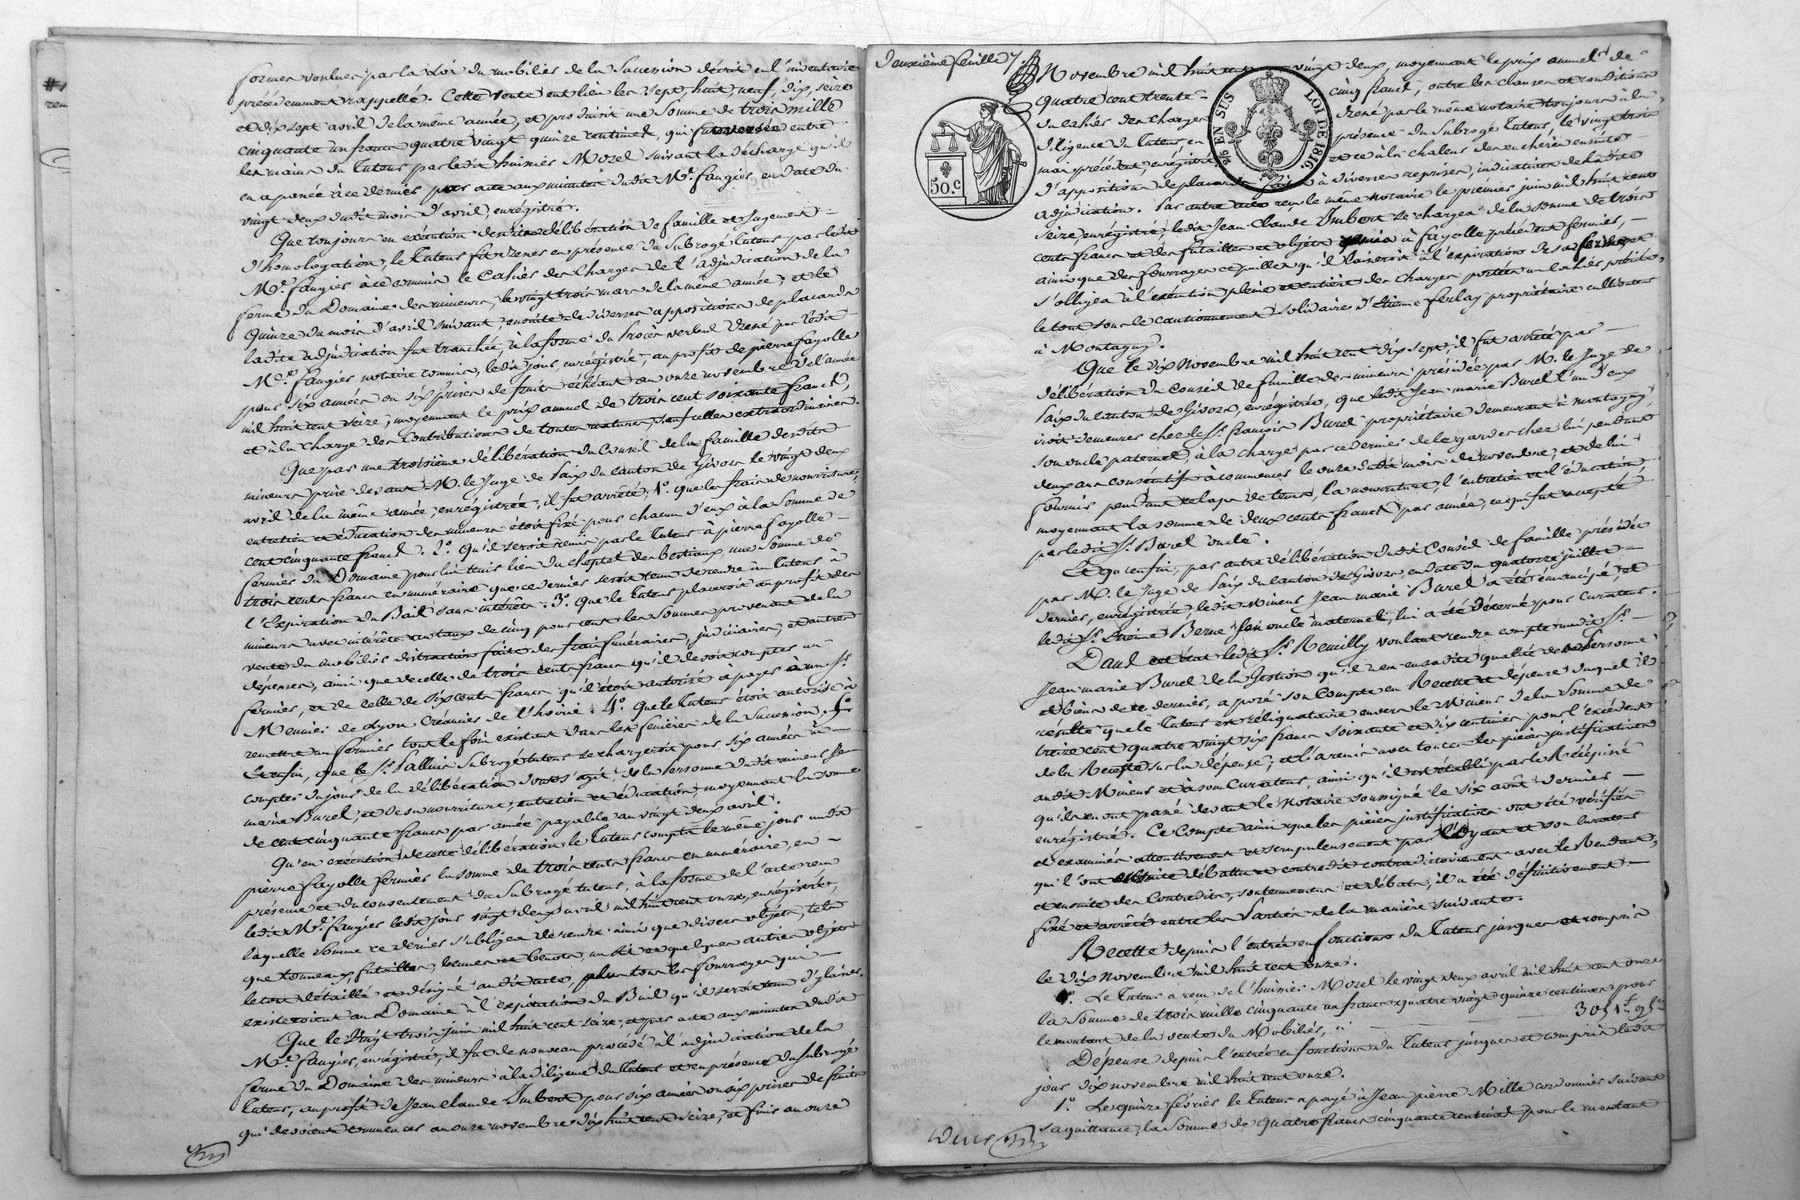 formes voulues par la Loi du mobilier de la Succession décrit en l'inventaire
précédemment rappellé. Cette vente eut lieu les sept, huit, neuf, dix, seize
et dix sept avril de la même année, et produisit une somme de trois mille
cinquante un francs quatre vingt quinze centimes, qui fut versée entre
les mains du Tuteur par ledit huissier Morel suivant la décharge qu'il
en a passée à ce dernier par acte aux minutes dudit Me. faugier, en date du
vingt deux dudit mois d'avril, enregistré.
Que toujours en exécution desdites délibération de famille et Jugement
d'homologation, le Tuteur fit dresser en présence du Subrogé Tuteur par ledit
Me. faugier à ce commis le Cahier des Charges de l'adjudication de la
ferme du Domaine des mineurs, le vingt trois mars de la même année; et le
quinze du mois d'avril suivant, ensuite de diverses appositions de placards
ladite adjudication fut tranchée à la forme du procès verbal dressé par ledit
Me. faugier notaire commis, ledit jour, enregistré, au profit de pierre fayolle
pour six années ou six prises de fruits échéant au onze novembre de l'année
mil huit cent seize, moyennant le prix annuel de trois cent soixante francs,
et à la charge des Contributions de toutes natures, sauf celles extraordinaires.
Que par une troisième délibération du Conseil de la famille desdits
mineurs prise devant M. le Juge de Paix du Canton de Givors le vingt deux
avril de la même année, enregistrée, il fut arrêté; 1o. que les frais de nourriture,
entretien et éducation des mineurs étoit fixé pour chacun d'eux à la Somme de
cent cinquante francs. 2o. Qu'il seroit remis par le Tuteur à pierre fayolle
fermier du Domaine pour lui tenir lieu du cheptel des bestiaux, une Somme de
trois cents francs en numéraire que ce dernier seroit tenu de rendre au tuteur à
l'Expiration du Bail sans intérêts. 3o. Que le Tuteur placeroit au profit des
mineurs avec intérêts au taux de cinq pour cent les Sommes provenant de la
vente du mobilier distraction faite des frais funéraires, judiciaires, et autres
dépenses, ainsi que de celle de trois cents francs qu'il devoit compter au
fermier, et de celle de six cents francs qu'il étoit autorisé à payer à un Sr.
Meunier de Lyon Créancier de l'hoirie. 4o. Que le Tuteur étoit autorisé à
remettre au fermier tout le foin existant dans les fenières de la Succession. 5o.
Et enfin, que le Sr. Pallui Subrogé tuteur se chargeroit pour six années à
compter du jour de la délibération dont s'agit, de la Personne dudit mineur Jean
marie Burel, et de sa nourriture, entretien et éducation, moyennant la somme
de cent cinquante francs par année payable au vingt deux avril.
Qu'en exécution de cette délibération le Tuteur compta le même jour audit
pierre fayolle fermier la somme de trois cents francs en numéraire, en
présence et du consentement du Subrogé tuteur, à la forme de l'acte reçu
ledit Me. faugier ledit jour vingt deux avril mil huit cent onze, enregistré,
laquelle somme ce dernier s'obligea de rendre ainsi que divers objets, tels
que tonneaux, futailles, bennes et benots, un lit et quelques autres objets
le tout détaillé et désigné audit acte, plus tous les fourrages qui
existeroient au Domaine à l'expiration du Bail qu'il seroit tenu d'y laisser.
Que le vingt trois juin mil huit cent seize, et par acte aux minutes dudit
Me. faugier, enregistré, il fut de nouveau procédé à l'adjudication de la
ferme du Domaine des mineurs à la diligence du Tuteur et en présence du Subrogé
tuteur, au profit de Jean Claude Imbert pour six années ou six prises de fruits
qui devoient commencer au onze novembre dix huit cent seize, et finir au onze
deuxième feuille
Novembre mil huit cent vingt deux, moyennant le prix annuel de
quatre cent trente cinq francs, outre les charges et conditions
du cahier des Charges dressé par le même notaire toujours à la
diligence du Tuteur, en présence du Subrogé tuteur, le vingt trois
mai précédent, enregistré et ce à la chaleur des enchères ensuite
d'apposition de placards faite à diverses reprises, indicative de ladite
adjudication. Par autre acte reçu le même notaire le premier juin mil huit cent
seize, enregistré, ledit Jean Claude Imbert se chargea de la somme de trois
cents francs et des futailles et objets remis à fayolle précédent fermier,
ainsi que des fourrages et pailles qu'il laisseroit à l'expiration de sa ferme et
s'obligea à l'exécution pleine et entière des charges portées au Cahier précité,
le tout sous le cautionnement solidaire d'Etienne ferlay propriétaire cultivateur
à Montagny.
Que le dix Novembre mil huit cent dix sept, il fut arrêté par
délibération du Conseil de famille des mineurs présidée par M. le Juge de
Paix du Canton de Givors, enregistrée, que ledit Jean marie Burel l'un d'eux
iroit demeurer chez le Sr. françois Burel propriétaire demeurant à montagny,
son oncle paternel, à la charge par ce dernier de le garder chez lui pendant
deux ans consécutifs à commencer le onze dudit mois de novembre; et de lui
fournir pendant ce laps de tems, la nourriture, l'entretien et l'éducation
moyennant la somme de deux cents francs par année, ce qui fut accepté
par ledit Sr. Burel oncle.
Et qu'enfin, par autre délibération dudit Conseil de famille présidée
par M. le Juge de Paix du canton de Givors, en date du quatorze juillet
dernier, enregistrée, ledit mineur Jean marie Burel a été émancipé, et
ledit Sr. Etienne Berne son oncle maternel, lui a été décerné pour Curateur.
Dans cet état ledit Sr. Remilly voulant rendre compte audit Sr.
Jean marie Burel de la Gestion qu'il a eu en sadite qualité de sa Personne
et biens de ce dernier, a posé son Compte en Recette et dépense duquel il
résulte que le Tuteur est réliquataire envers le Mineur de la Somme de
treize cent quatre vingt six francs soixante et dix centimes pour l'excédent
de la Recette sur la dépense; et l'a remis avec toutes les pièces justificatives
audit Mineur et à son Curateur, ainsi qu'il est établi par le Récépissé
qu'ils en ont passé devant le Notaire soussigné le six août dernier
enregistré. Ce Compte ainsi que les pièces justificatives ont été vérifiés
et examinés attentivement et scrupuleusement par l'oyant et son Curateur
qui l'ont ensuite débattu et contredit contradictoirement avec le Rendant,
et ensuite des Contredits, soutenemens et débats, il a été définitivement
fixé et arrêté entre les Parties de la manière suivante.
Recette depuis l'entrée en fonctions du Tuteur jusques et compris
le dix novembre mil huit cent onze.
1o. Le Tuteur a reçu de l'huissier Morel le vingt deux avril mil huit cent onze
la Somme de trois mille cinquante un francs quatre vingt quinze centimes pour
le montant de la vente du Mobilier, ci 3051f. 95c.
Dépense depuis l'entrée en fonctions du Tuteur jusques et compris ledit
jour dix novembre mil huit cent onze.
1o. Le quinze février le Tuteur a payé à Jean pierre Mille cordonnier suivant
sa quittance, la Somme de quatre francs cinquante centimes pour le montant
50. C.
EN SUS
LOI DE 1816.